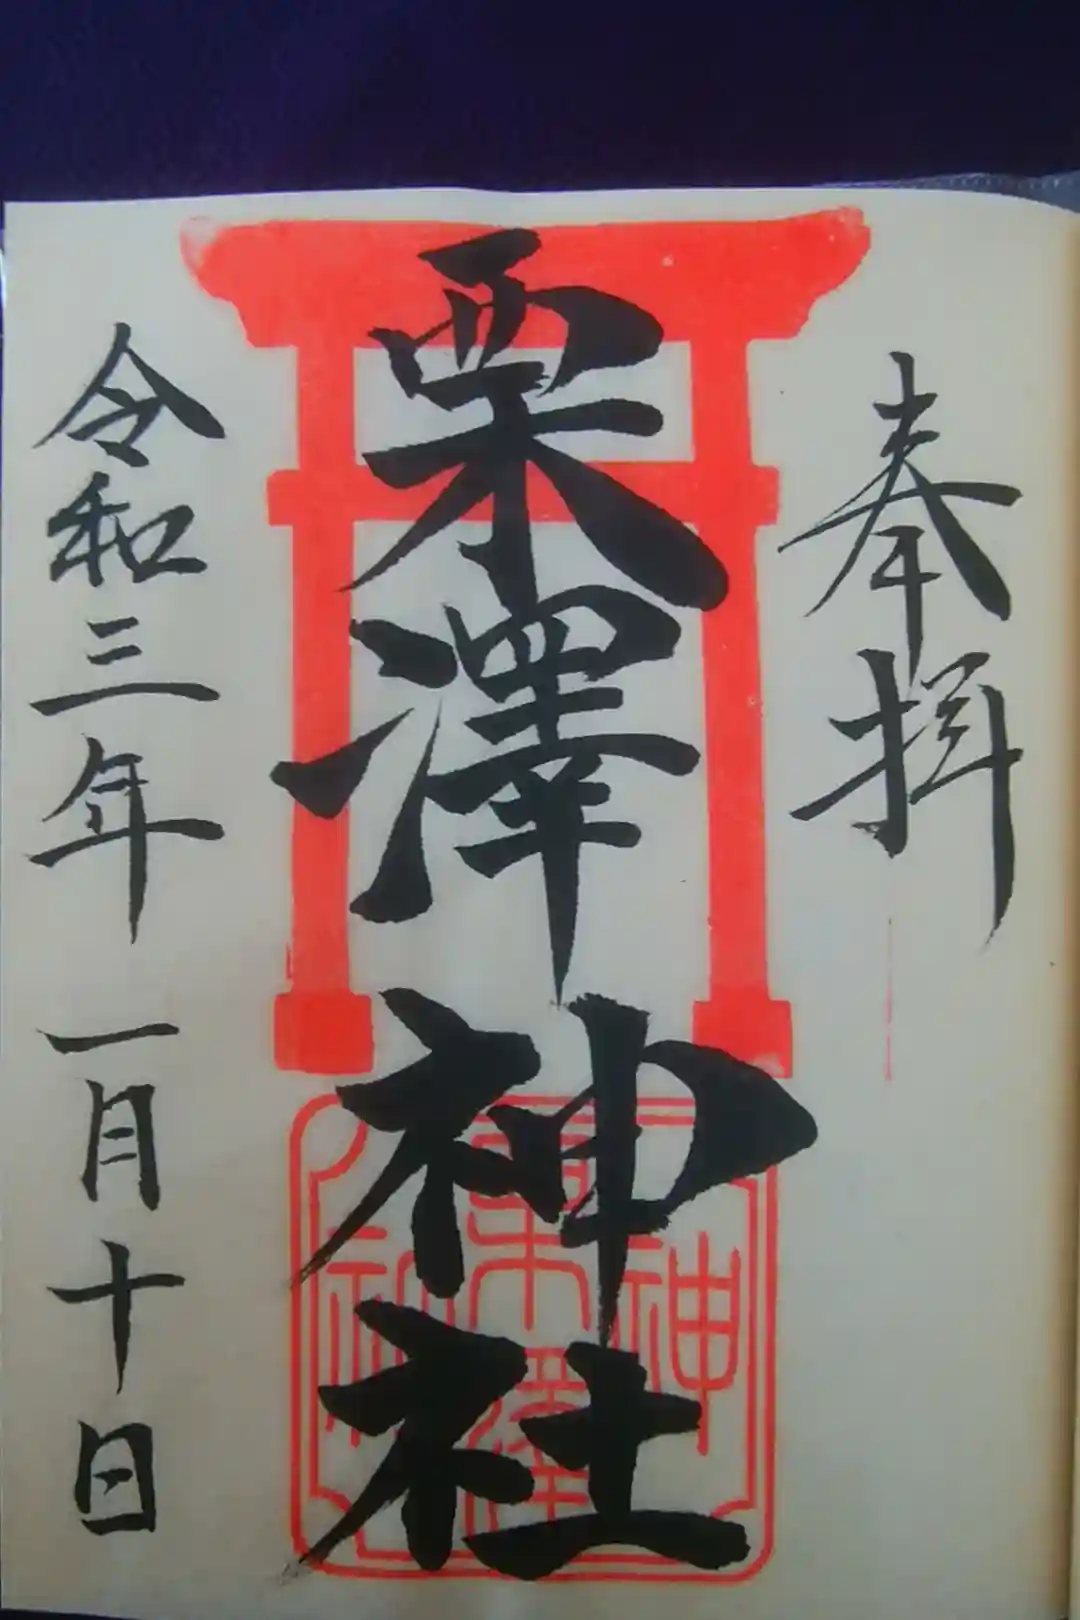 奉拝
栗澤神社
令和三年 一月十日
神
栗澤
社